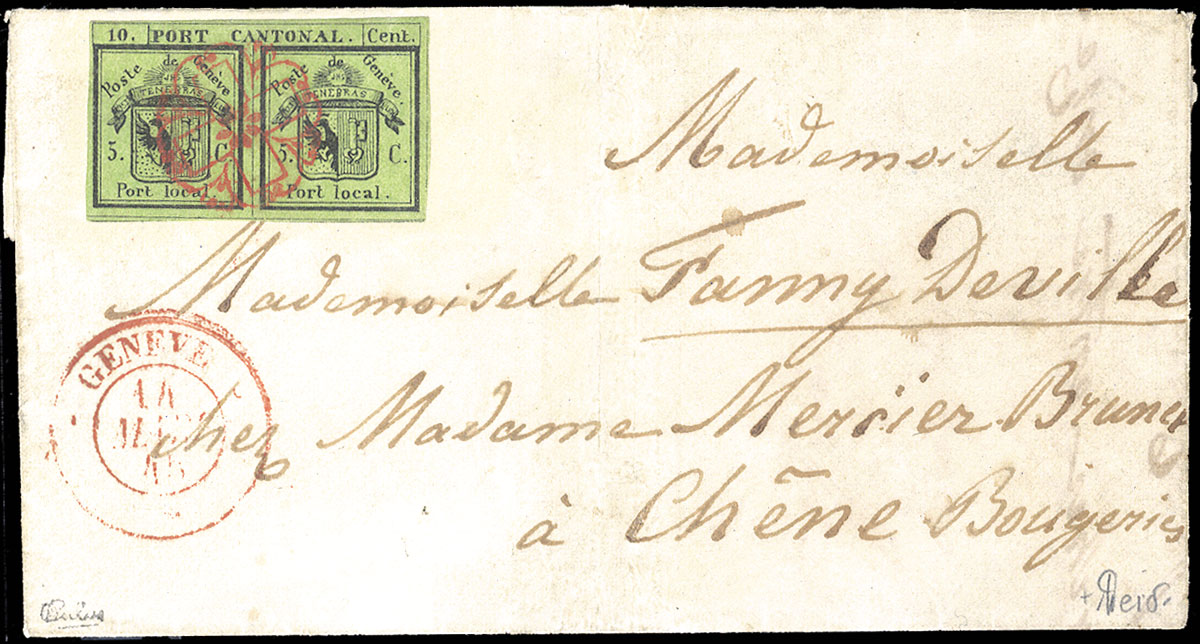 10. PORT CANTONAL. Cent.
Poste de Genève
JHS
TENEBRAS
5. C.
Port local.
Poste de Genève.
JHS
TENEBRAS
5. C.
Port local.
Mademoiselle
Mademoiselle Fanny Deville
chez Madame Mercier Brunet
à Chêne Bougeries
GENEVE